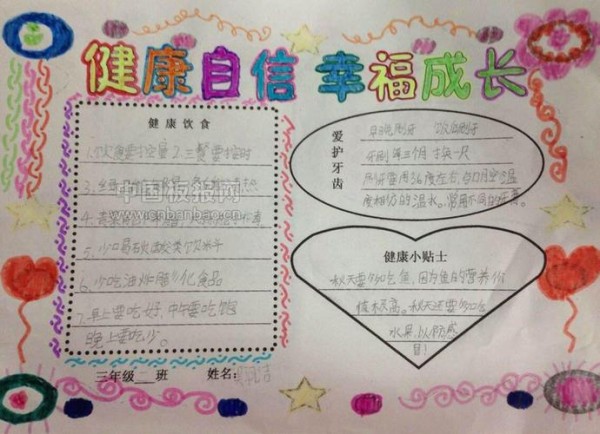 健康自信 幸福成长
健康饮食
1.饮食要控量2.三餐要按时
3.
中国板报网
www.cnbanbao.cn
4.
5.少喝碳酸类饮料
6.少吃油炸腌化食品
7.早上要吃好,中午要吃饱
晚上要吃少。
三年级二班 姓名:
爱护牙齿
早晚刷牙 饭后刷牙
牙刷每三个月换一只
刷牙要用36度左右,与口腔温
度相似的温水。常用不同的牙膏。
健康小贴士
秋天要多吃鱼,因为鱼的营养价
值极高。秋天还要多吃
水果,以防感
冒!